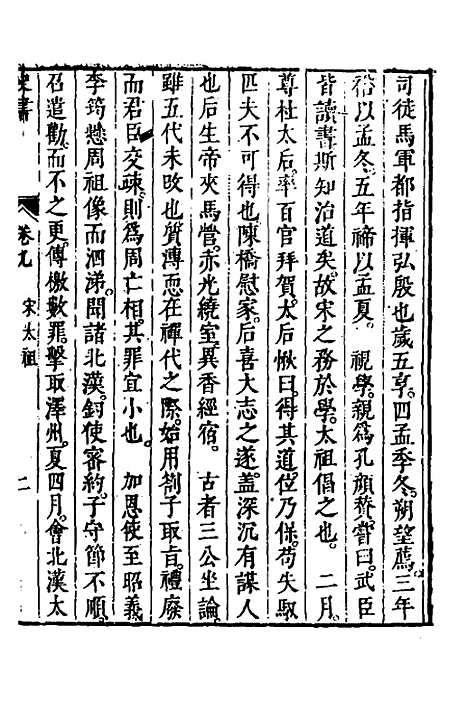 司徒馬軍都指揮弘殷也歲五享。四孟季冬。朔望薦。三年
祫以孟冬。五年禘以孟夏。 視學。親爲孔顔贊。嘗曰。武臣
皆讀書。斯知治道矣。故宋之務於學。太祖倡之也。 二月。
尊杜太后。率百官拜賀。太后愀曰。得其道。位乃保。苟失馭。
匹夫不可得也。陳橋慰家。后喜大志之遂。蓋深沉有謀人
也。后生帝夾馬營。赤光繞室。異香經宿。 古者三公坐論。
雖五代未改也。質溥恧在禪代之際。始用劄子取旨。禮廢
而君臣交疎。則爲周亡相。其罪宜小也。 加恩使至昭義。
李筠懸周祖像而泣涕。聞諸北漢。鈞使審約。子守節不順。
召遣勸而不之更。傳檄數罪。擊取澤州。夏四月。會北漢太
卷九 宋太祖 二